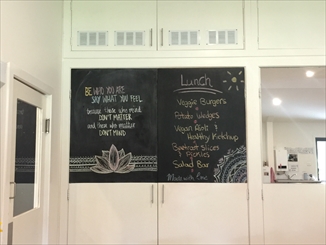 BE WHO YOU ARE
SAY WHAT YOU FEEL
because those who mind
DON'T MATTER
and those who matter
DON'T MIND
Lunch
Veggie Burgers
Potato Wedges
Vegan Aioli &
Healthy Ketchup
Beetroot Slices
Pickles
Salad Bar
Made with Love